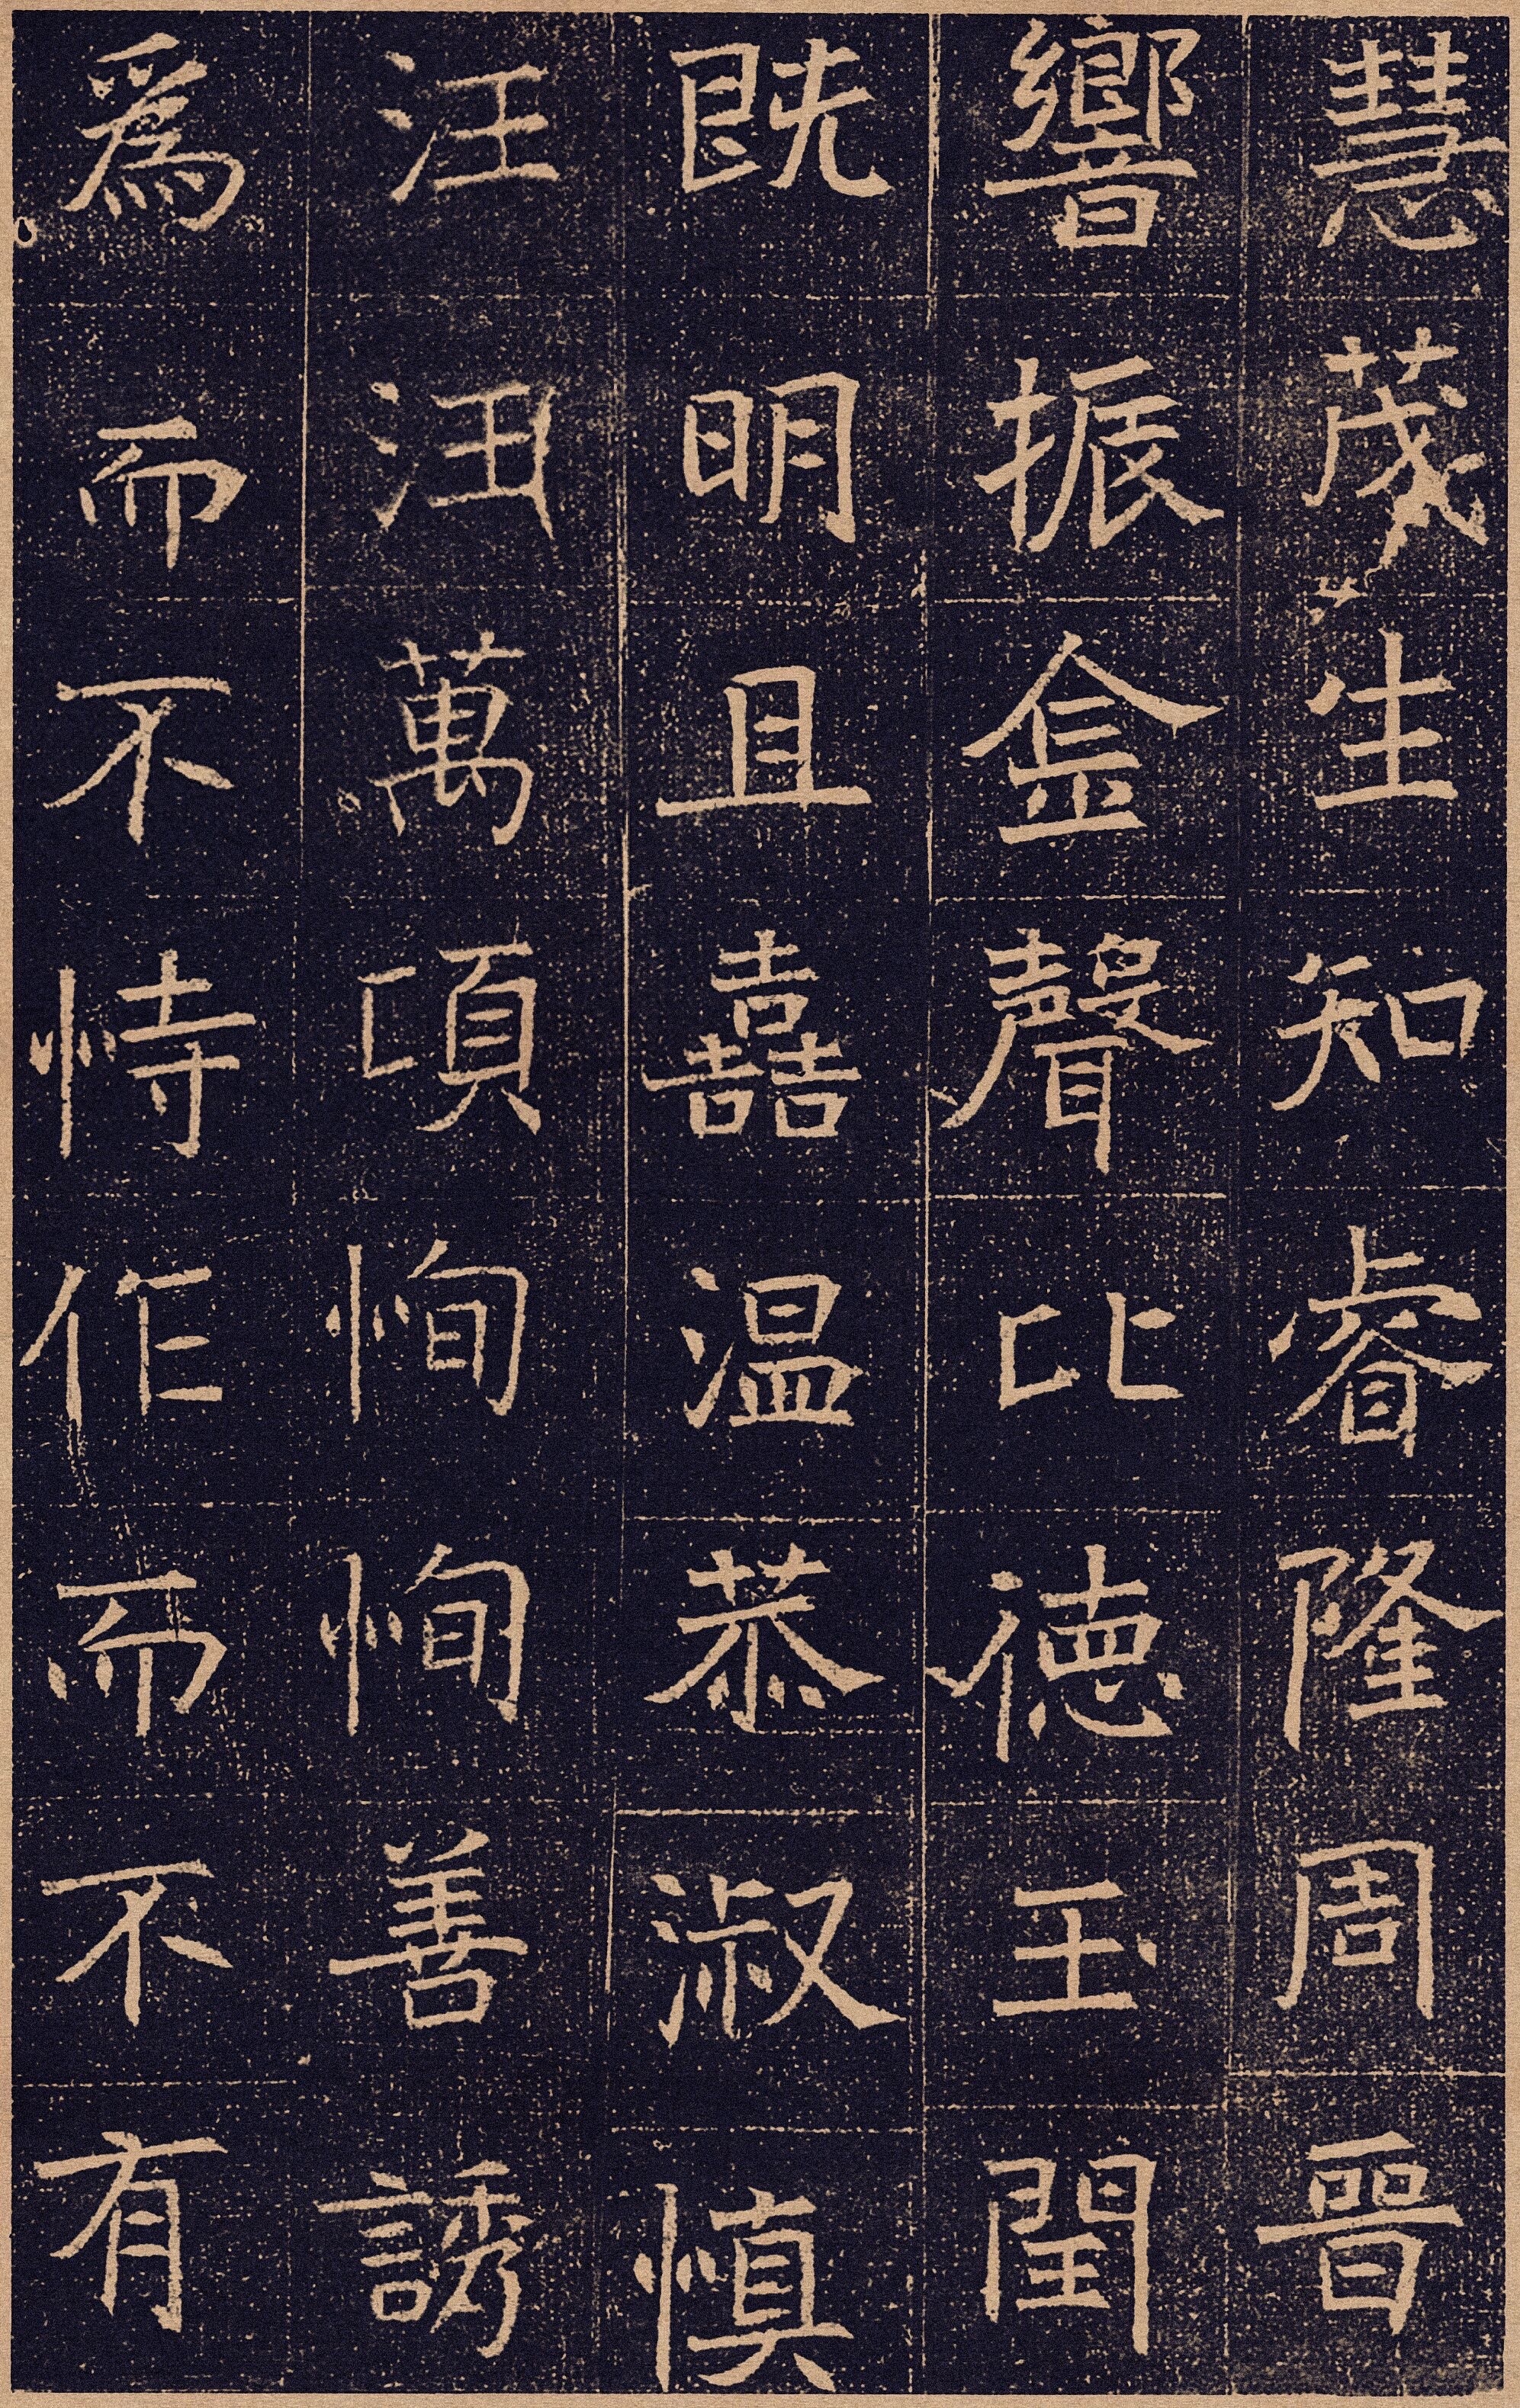 慧茂生知睿隆周晉
響振金聲比德玉閏
既明且嚞温恭淑慎
汪汪萬頃恂恂善誘
爲而不恃作而不有